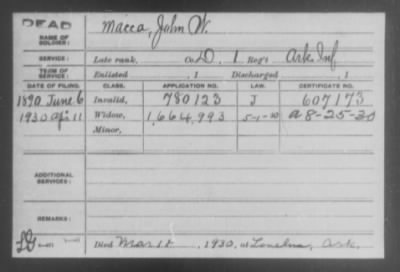 DEAD
NAME OF SOLDIER: Macca, John W.
SERVICE: Late rank, Co. D, 1 Reg't Ark Inf
TERM OF SERVICE: Enlisted , 1 Discharged , 1
DATE OF FILING. CLASS. APPLICATION NO. LAW. CERTIFICATE NO.
1890 June 6 Invalid, 780123 J 607173
1930 Apr 11 Widow, 1,664,993 5-1-20 A 8-25-30
Minor,
ADDITIONAL SERVICES:
REMARKS:
Died Mar , 1930, at Ark.